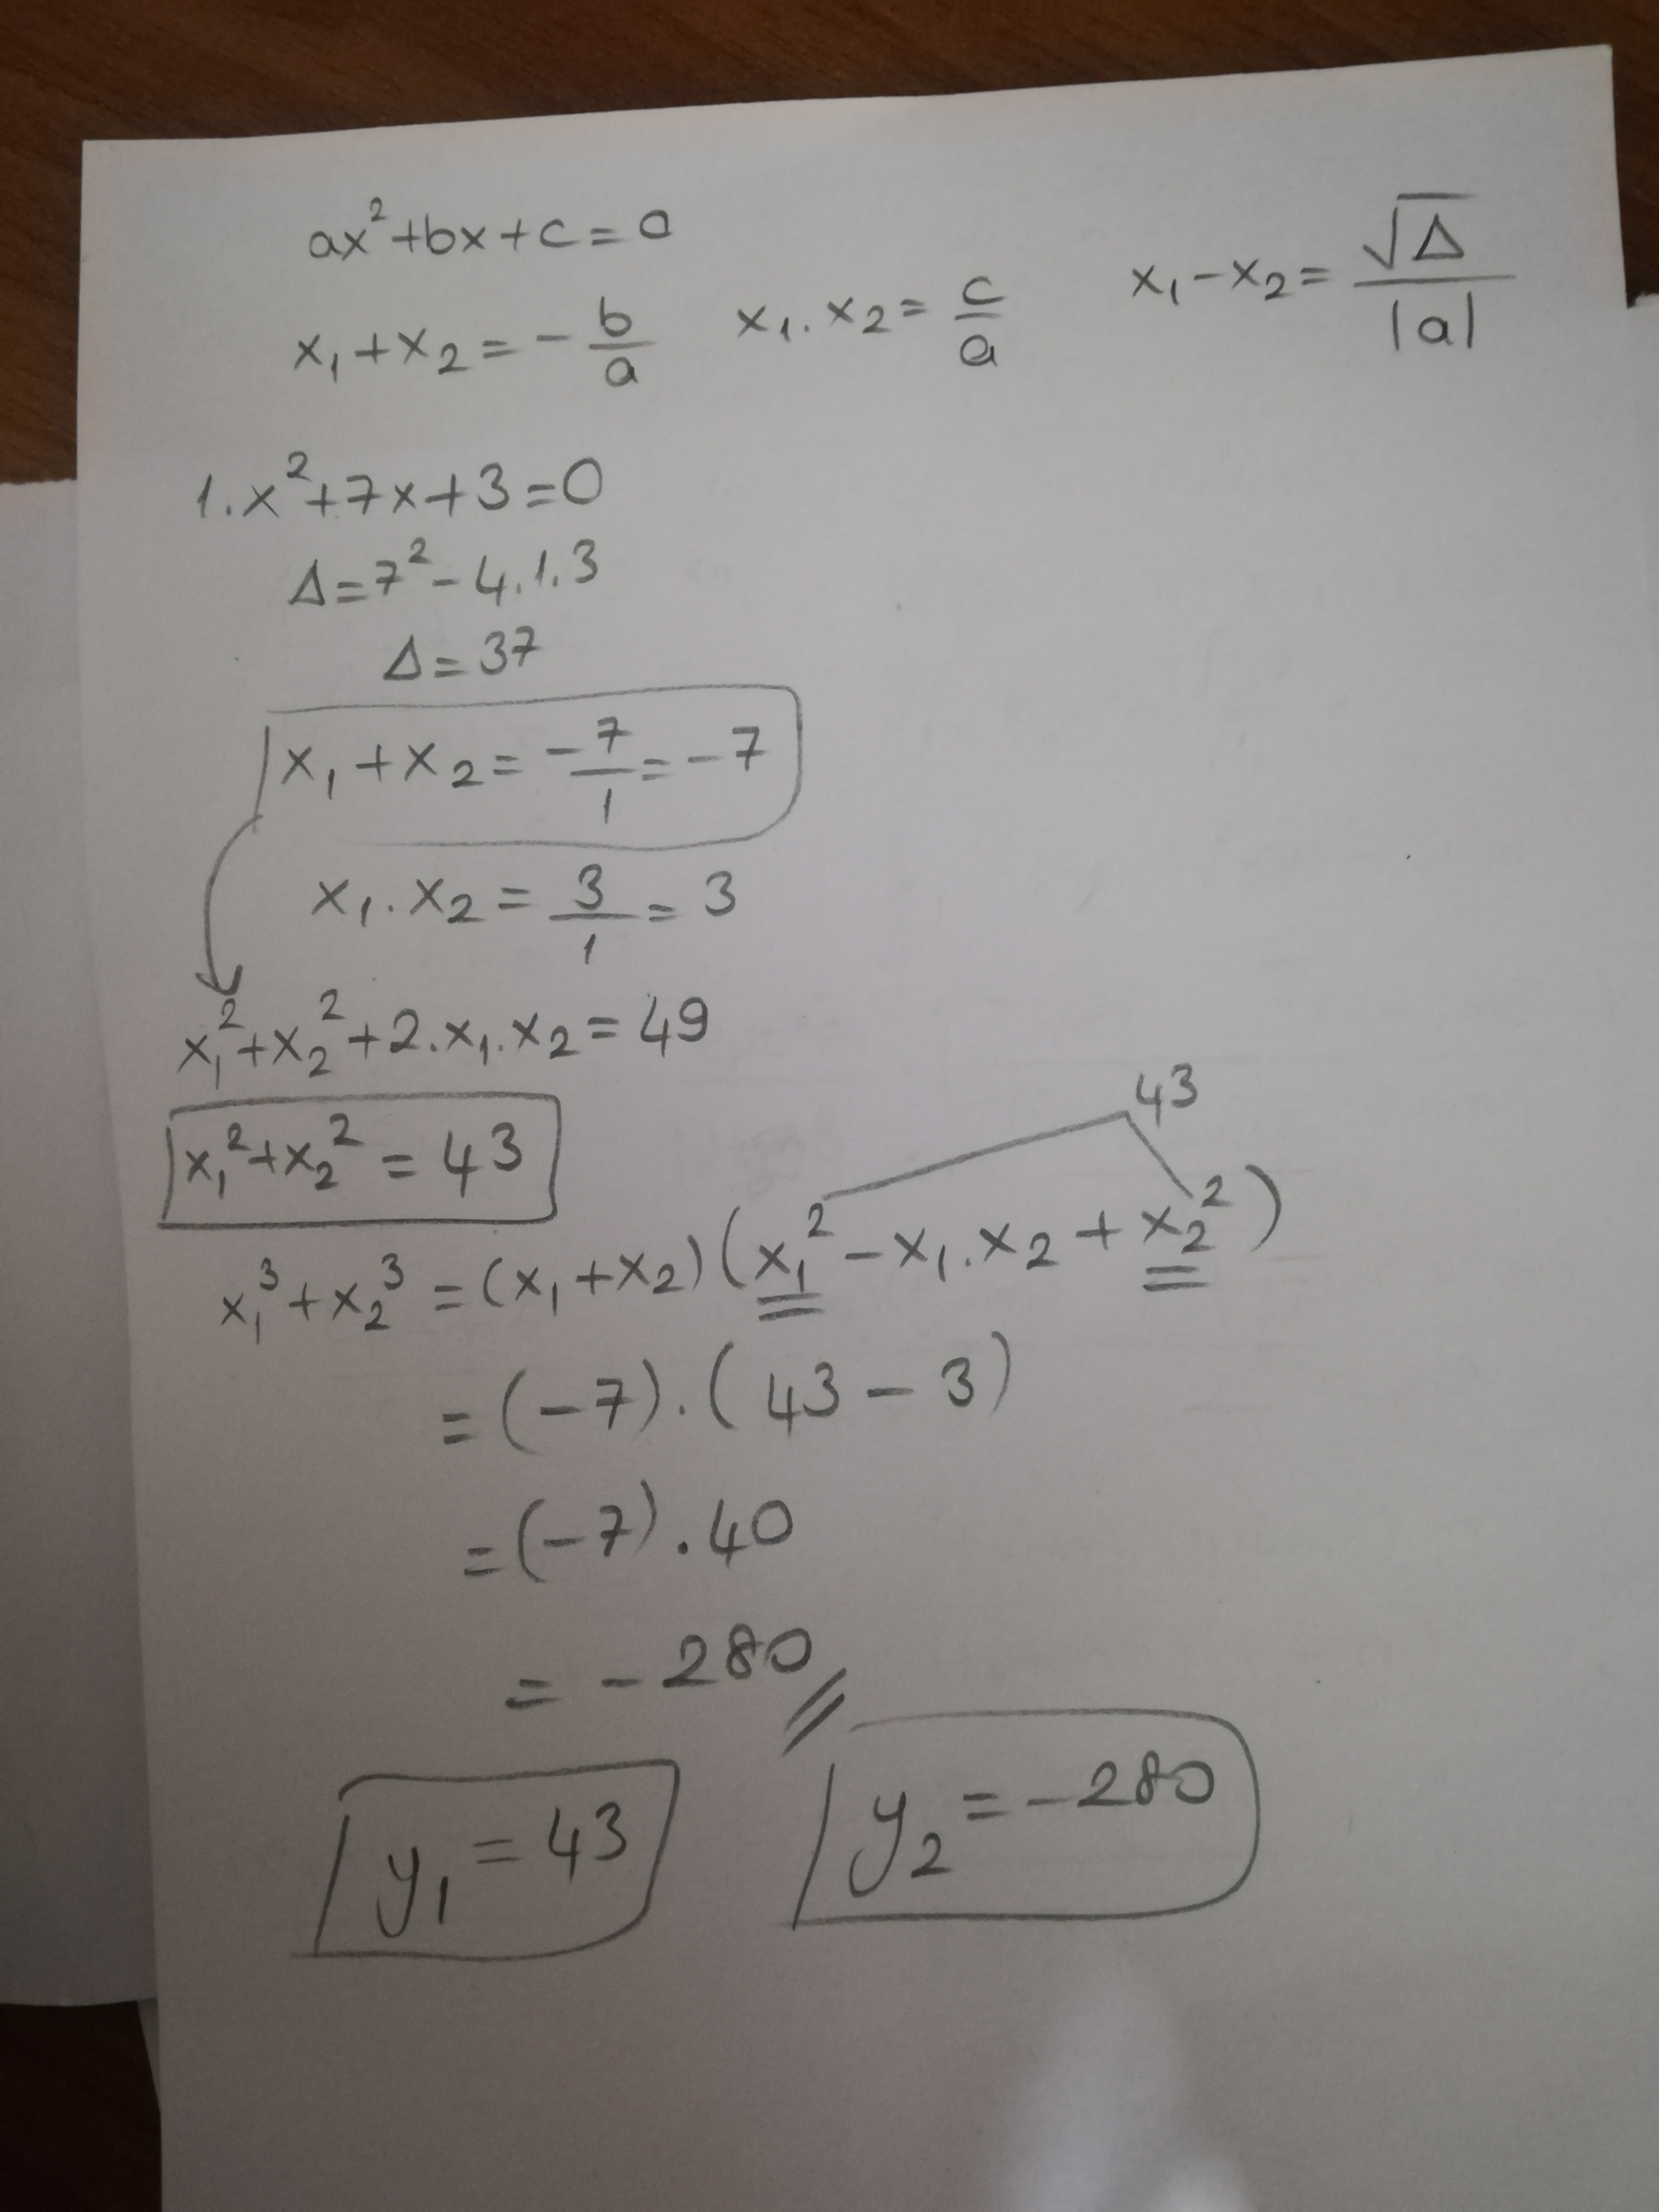 ax²+bx+c=0
x₁+x₂=-b/a   x₁.x₂=c/a   x₁-x₂=√Δ/|a|
1.x²+7x+3=0
Δ=7²-4.1.3
Δ=37
x₁+x₂=-7/1=-7
x₁.x₂=3/1=3
x₁²+x₂²+2.x₁.x₂=49
x₁²+x₂²=43
43
x₁³+x₂³=(x₁+x₂)(x₁²-x₁.x₂+x₂²)
=(-7).(43-3)
=(-7).40
=-280//
y₁=43   y₂=-280